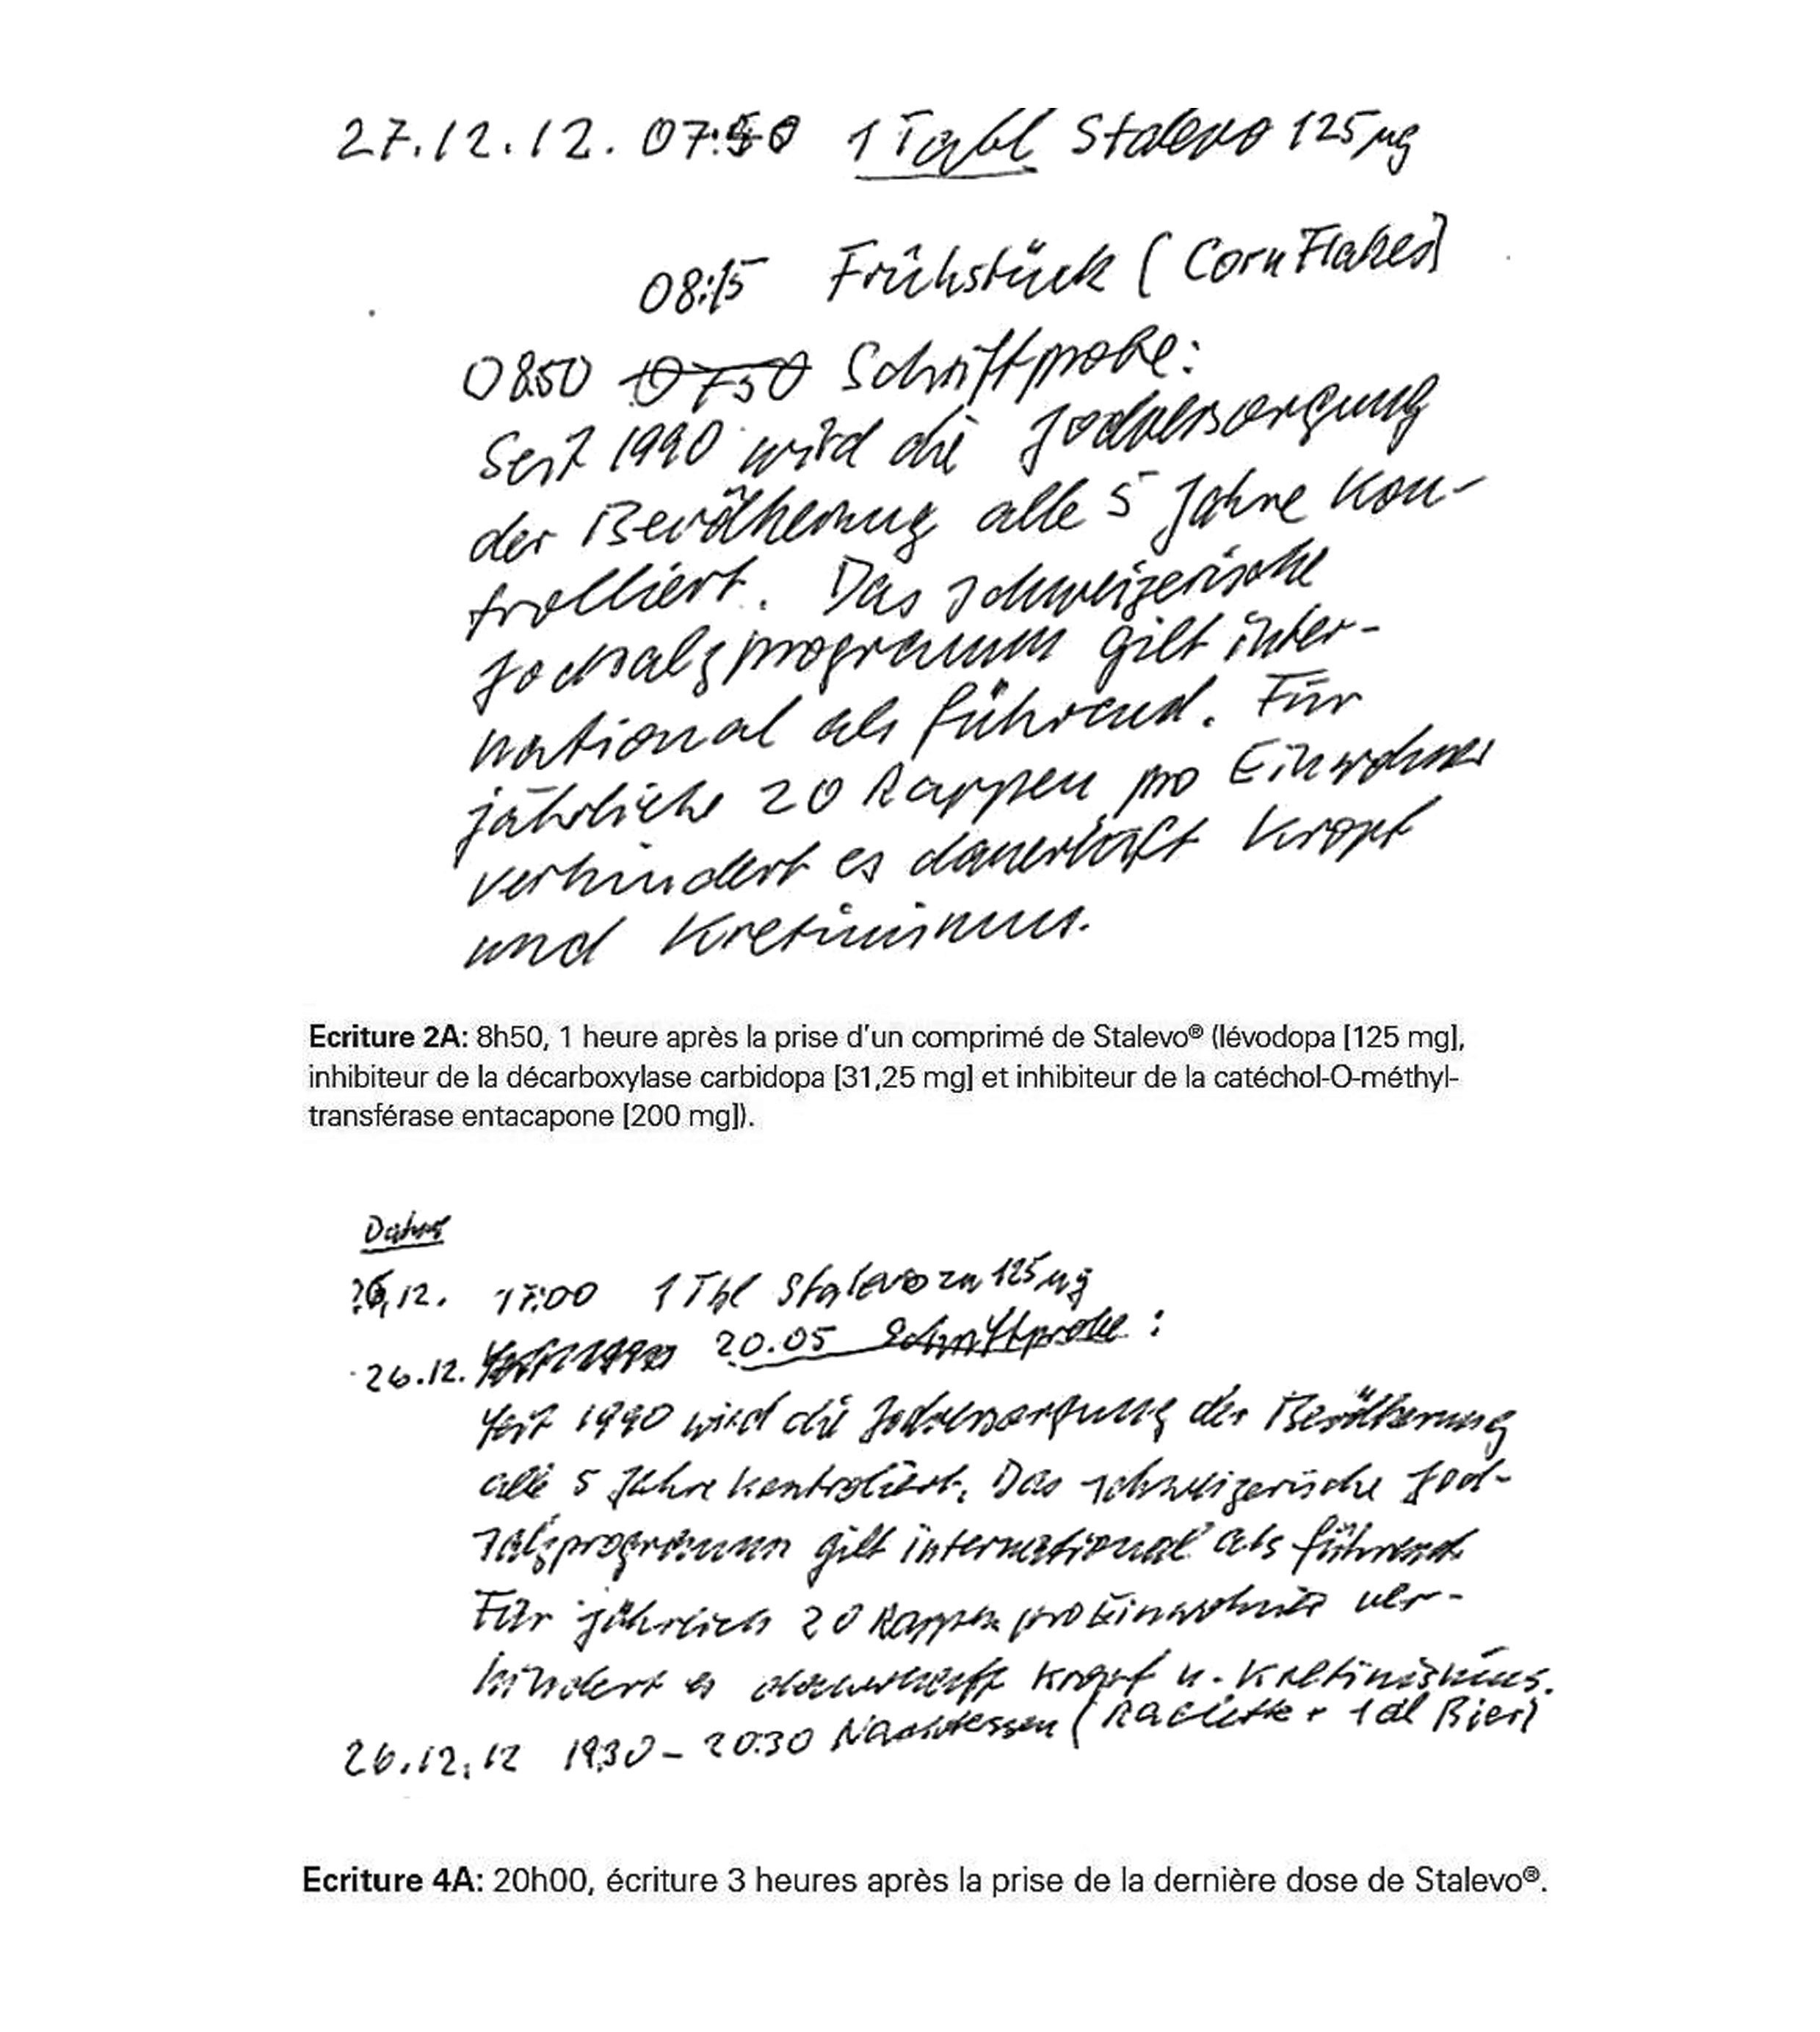 27.12.12. 07:50 1 Tabl Stalevo 125 mg
08:15 Frühstück (Corn Flakes)
0850 0750 Schriftprobe:
Seit 1990 wird die Jodversorgung
der Bevölkerung alle 5 Jahre kon-
trolliert. Das schweizerische
Jodsalzprogramm gilt inter-
national als führend. Für
jährliche 20 Rappen pro Einwohner
verhindert es dauerhaft Kropf
und Kretinismus.
Ecriture 2A: 8h50, 1 heure après la prise d’un comprimé de Stalevo® (lévodopa [125 mg],
inhibiteur de la décarboxylase carbidopa [31,25 mg] et inhibiteur de la catéchol-O-méthyl-
transférase entacapone [200 mg]).
Datum
26.12. 17:00 1 Tbl Stalevo zu 125 mg
26.12. 20.05 Schriftprobe:
Seit 1990 wird die Jodversorgung der Bevölkerung
alle 5 Jahre kontrolliert. Das schweizerische Jod-
salzprogramm gilt international als führend.
Für jährlich 20 Rappen pro Einwohner ver-
hindert es dauerhaft Kropf u. Kretinismus.
26.12.12 1930 – 2030 Nachtessen (Raclette + 1 dl Bier)
Ecriture 4A: 20h00, écriture 3 heures après la prise de la dernière dose de Stalevo®.